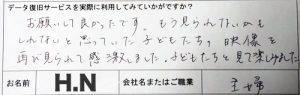 データ復旧サービスを実際に利用してみていかがですか?
お願いして良かったです。もう見られないかも
しれないと思っていた子どもたちの映像を
再び見られて感激しました。子どもたちと見て楽しみました
お名前 H.N 会社名またはご職業 主婦